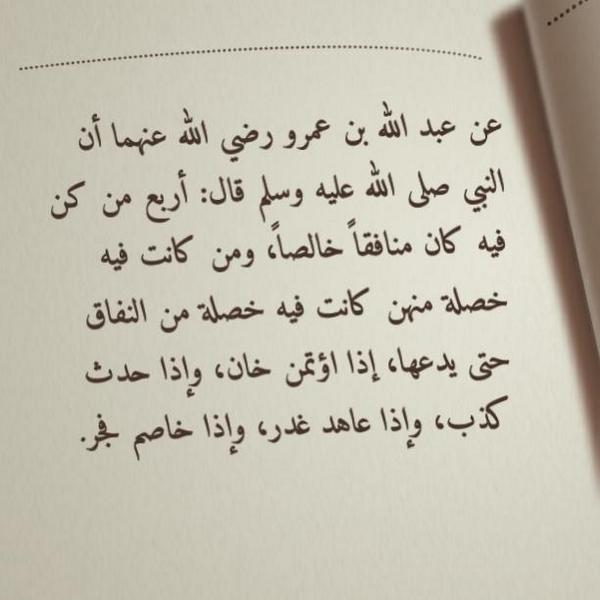 عن عبد الله بن عمرو رضي الله عنهما أن
النبي صلى الله عليه وسلم قال: أربع من كن
فيه كان منافقاً خالصاً، ومن كانت فيه
خصلة منهن كانت فيه خصلة من النفاق
حتى يدعها، إذا اؤتمن خان، وإذا حدث
كذب، وإذا عاهد غدر، وإذا خاصم فجر.